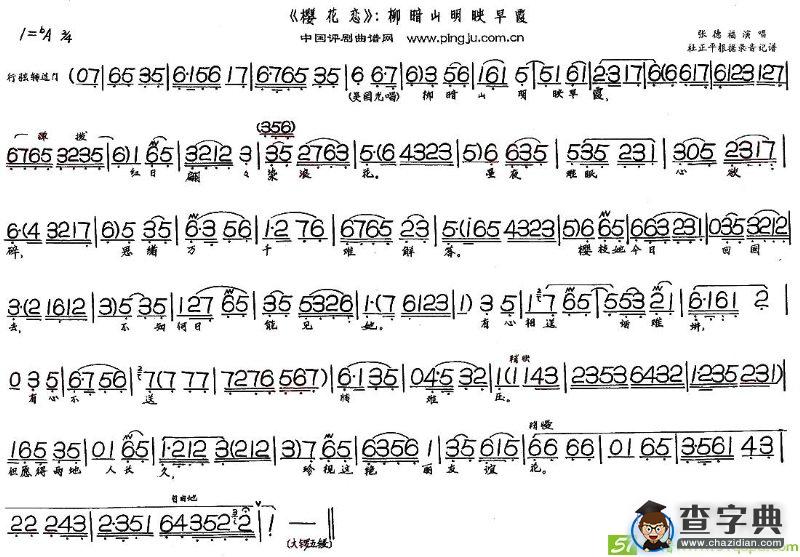 《樱花恋》:柳暗山明映早霞
1=♭A 2/4 中国评剧曲谱网 www.pingju.com.cn
张德福演唱
杜正平根据录音记谱
行弦转过门 (07 | 65 35 | 6·156 17 | 6·765 35 | 6 6·7 | 6)3 56 | 161 5 | 51 61 | 2·317 | 6(6617 | 6123 1235 | 2317 6123
(吴国光唱) 柳暗山明映早霞,
弹拨
(356)
6765 3235 | 6)1 65 | 3212 3 | 35 2763 | 5·(6 4323 | 5)6 635 | 535 231 | 305 2317
红日翩々染浪花。星夜难眠心欲
6·(4 3217 | 6)5 35 | 6·3 56 | 1 6 | 6765 23 | 5·(i65 4323 | 5)6 65 | 663 231 | 035 3212
碎,思绪万千难解答。樱枝她今日回国
3·(2 1612 | 3)5 35 | 127 65 | 35 5326 | 1·(7 6123 | 1) 35 | 17 65 | 553 21 | 6·161 2
去,不知何日能见她。有心相送
035 | 6·7 56 | 7(7 77 | 7276 567) | 6·1 35 | 04·5 32 | 1(1 143 | 2353 6432 | 1235 231)
有心不送情难压。
稍快
165 35 | 01 65 | 1·212 3(212 | 3)7 65 | 6356 1 | 635 66 | 01 65 | 3·561 43
但愿得两地人长久,珍视这艳丽友谊花。
稍慢
22 243 | 2·351 64352 2 | 1 — ‖
自由地
(大锣五锤)
查字典
www.chazidian.com